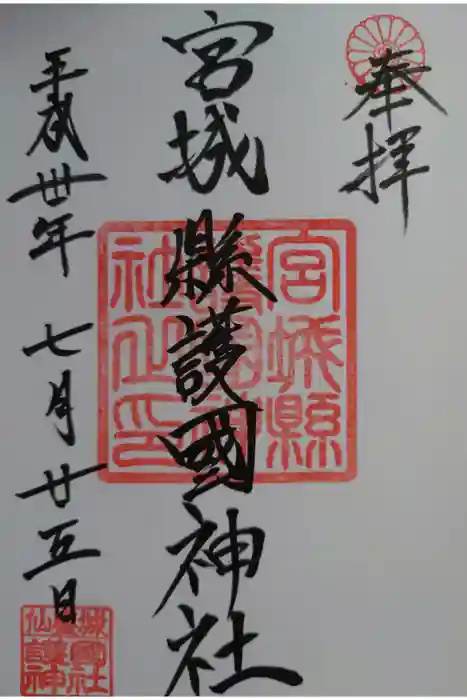 奉拝
宮城縣護國神社
平成卅年七月廿五日
宮城縣
護國神
社之印